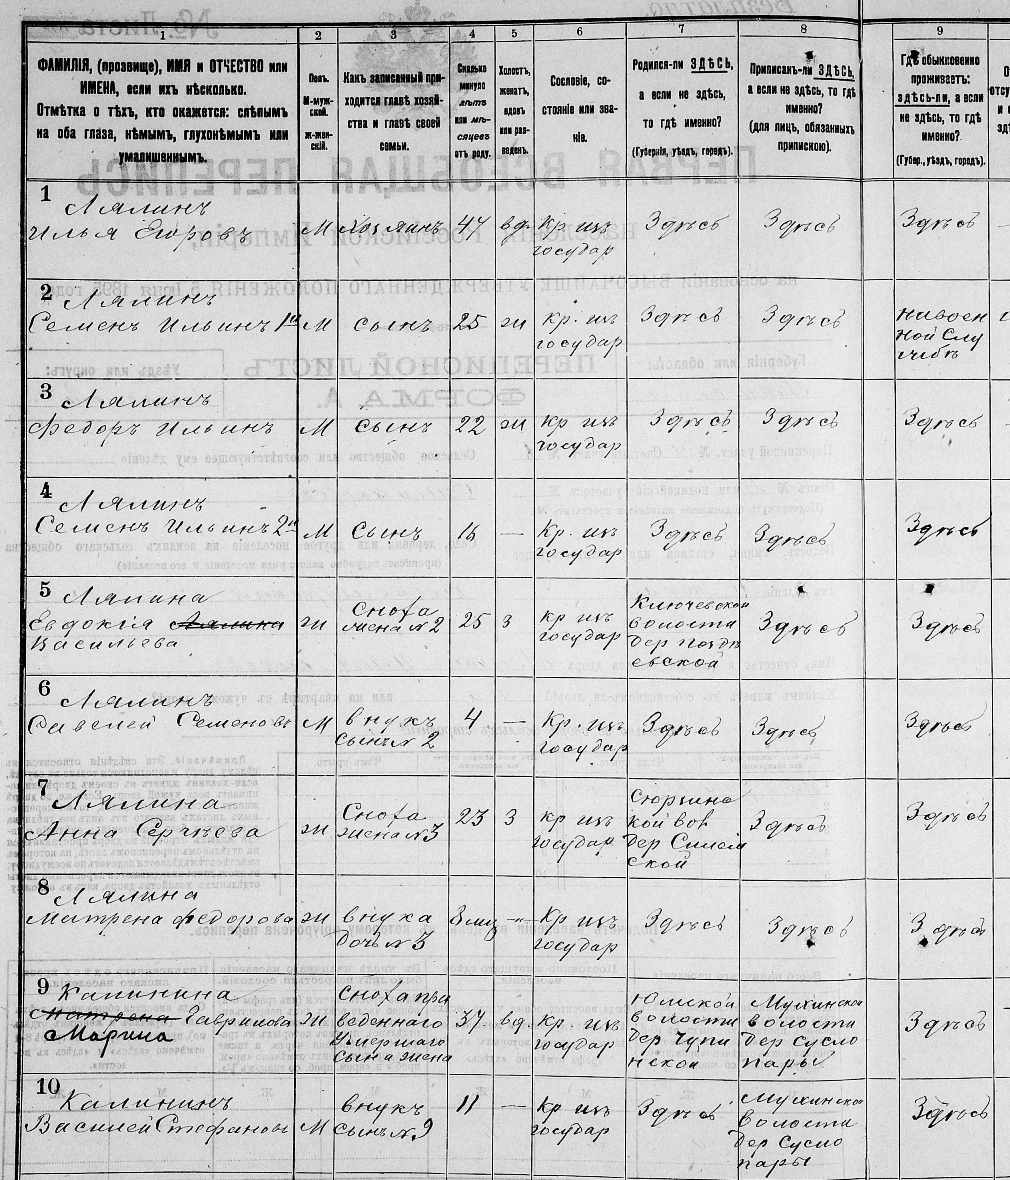 1
2
3
4
5
6
7
8
9
ФАМИЛІЯ, (прозвище), ИМЯ и ОТЧЕСТВО или
ИМЕНА, если ихъ нѣсколько.
Отмѣтка о тѣхъ, кто окажется: слѣпымъ
на оба глаза, нѣмымъ, глухонѣмымъ или
умалишеннымъ.
Полъ.
М-муж-
ской.
ж-жен-
скій.
Какъ записанный при-
ходится главѣ хозяй-
ства и главѣ своей
семьи.
Сколько
минуло
лѣтъ
или мѣ-
сяцевъ
отъ роду.
Холостъ,
женатъ,
вдовъ
или раз-
веденъ.
Сословіе, со-
стояніе или зва-
ніе.
Родился-ли ЗДѢСЬ,
а если не здѣсь,
то гдѣ именно?
(Губернія, уѣздъ, городъ).
Приписанъ-ли ЗДѢСЬ,
а если не здѣсь, то гдѣ
именно?
(для лицъ, обязанныхъ
припискою).
Гдѣ обыкновенно
проживаетъ:
здѣсь-ли, а если
не здѣсь, то гдѣ
именно?
(Губер., уѣздъ, городъ).
1
Лялинъ
Илья Егоровъ
М
Хозяинъ
47
вд.
Кр. изъ
государ
Здѣсь
Здѣсь
Здѣсь
2
Лялинъ
Семенъ Ильинъ 1й
М
сынъ
25
ж
Кр. изъ
государ
Здѣсь
Здѣсь
на воен
ной слу
жбѣ
3
Лялинъ
Федоръ Ильинъ
М
Сынъ
22
ж
Кр изъ
государ
Здѣсь
Здѣсь
Здѣсь
4
Лялинъ
Семенъ Ильинъ 2й
М
Сынъ
16
—
Кр. изъ
государ
Здѣсь
Здѣсь
Здѣсь
5
Лялина
Евдокія Лялина
Васильева
ж
Сноха
жена №2
25
З
Кр изъ
государ
Ключевской
волости
дер
евской
Здѣсь
Здѣсь
6
Лялинъ
Савелей Семеновъ
М
внукъ
Сынъ № 2
4
—
Кр. изъ
государ
Здѣсь
Здѣсь
Здѣсь
7
Лялина
Анна Сергѣева
ж
Сноха
жена №3
23
З
Кр изъ
государ
кой вол
дер
ской
Здѣсь
Здѣсь
8
Лялина
Матрена Федорова
ж
внука
Дочь №3
8 мц
—
Кр изъ
государ
Здѣсь
Здѣсь
Здѣсь
9
Калинина
Матрена Гаврилова
Марина
ж
Сноха при
веденнаго
умершаго
сына жена
37
вд.
Кр. изъ
государ
Юмской
волости
дер Чупи
нской
Мухинской
волости
дер Сусло
пары
Здѣсь
10
Калининъ
Василей Стефановъ
М
внукъ
сынъ №9
11
—
Кр изъ
государ
Здѣсь
Мухинской
волости
дер Сусло
пары
Здѣсь